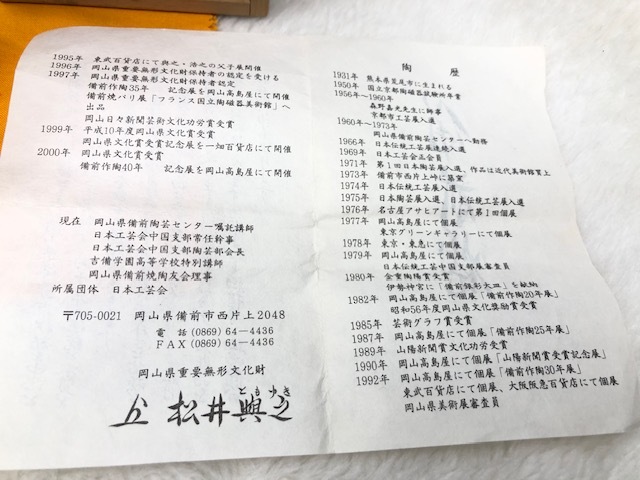 陶歴
1931年 熊本県荒尾市に生まれる
1950年 国立京都陶磁器試験所卒業
1956年～1960年
森野嘉光先生に師事
京都市工芸展入選
1960年～1973年
岡山県備前陶芸センターへ勤務
1966年 日本伝統工芸展連続入選
1969年 日本工芸会正会員
1971年 第1回日本陶芸展入選、作品は近代美術館買上
1973年 備前市西片上峠に築窯
1974年 日本伝統工芸展入選
1975年 日本陶芸展入選、日本伝統工芸展入選
1976年 名古屋アサヒアートにて第1回個展
1977年 岡山高島屋にて個展
東京グリーンギャラリーにて個展
1978年 東京・東急にて個展
1979年 岡山高島屋にて個展
日本伝統工芸中国支部展審査員
1980年 金重陶陽賞受賞
伊勢神宮に「備前緋彩大皿」を献納
1982年 岡山高島屋にて個展「備前作陶20年展」
昭和56年度岡山県文化奨励賞受賞
1985年 芸術グラフ賞受賞
1987年 岡山高島屋にて個展「備前作陶25年展」
1989年 山陽新聞賞文化功労受賞
1990年 岡山高島屋にて個展「山陽新聞賞受賞記念展」
1992年 岡山高島屋にて個展「備前作陶30年展」
東武百貨店にて個展、大阪阪急百貨店にて個展
岡山県美術展審査員
1995年 東武百貨店にて與之・浩之の父子展開催
1996年 岡山県重要無形文化財保持者の認定を受ける
1997年 岡山県重要無形文化財保持者認定
備前作陶35年 記念展を岡山高島屋にて開催
備前焼パリ展「フランス国立陶磁器美術館」へ
出品
岡山日々新聞芸術文化功労賞受賞
1999年 平成10年度岡山県文化賞受賞
岡山県文化賞受賞記念展を一畑百貨店にて開催
2000年 岡山県文化賞受賞
備前作陶40年 記念展を岡山高島屋にて開催
現在 岡山県備前陶芸センター嘱託講師
日本工芸会中国支部常任幹事
日本工芸会中国支部陶芸部会長
吉備学園高等学校特別講師
岡山県備前焼陶友会理事
所属団体 日本工芸会
〒705-0021 岡山県備前市西片上2048
電話 (0869) 64-4436
FAX (0869) 64-4436
岡山県重要無形文化財
ともゆき
松井與之